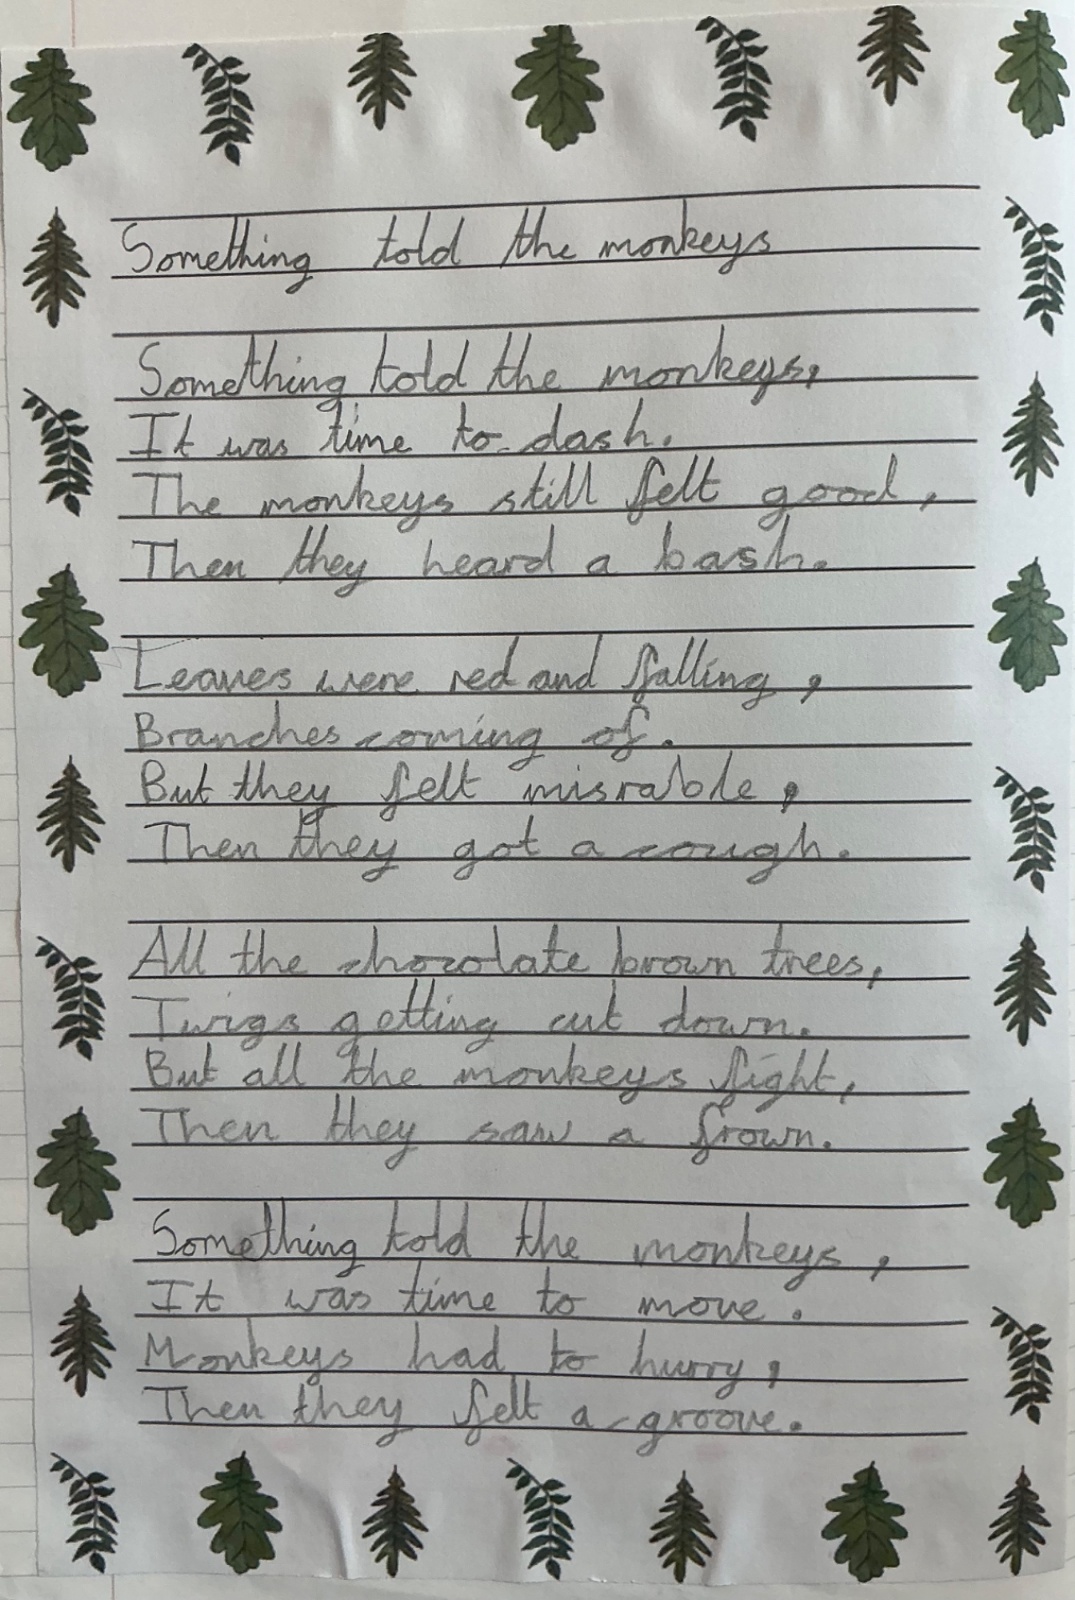 Something told the monkeys
Something told the monkeys,
It was time to dash.
The monkeys still felt good,
Then they heard a bash.
Leaves were red and falling,
Branches coming of.
But they felt misrable,
Then they got a cough.
All the chocolate brown trees,
Twigs getting cut down.
But all the monkeys fight,
Then they saw a frown.
Something told the monkeys,
It was time to move.
Monkeys had to hurry,
Then they felt a groove.